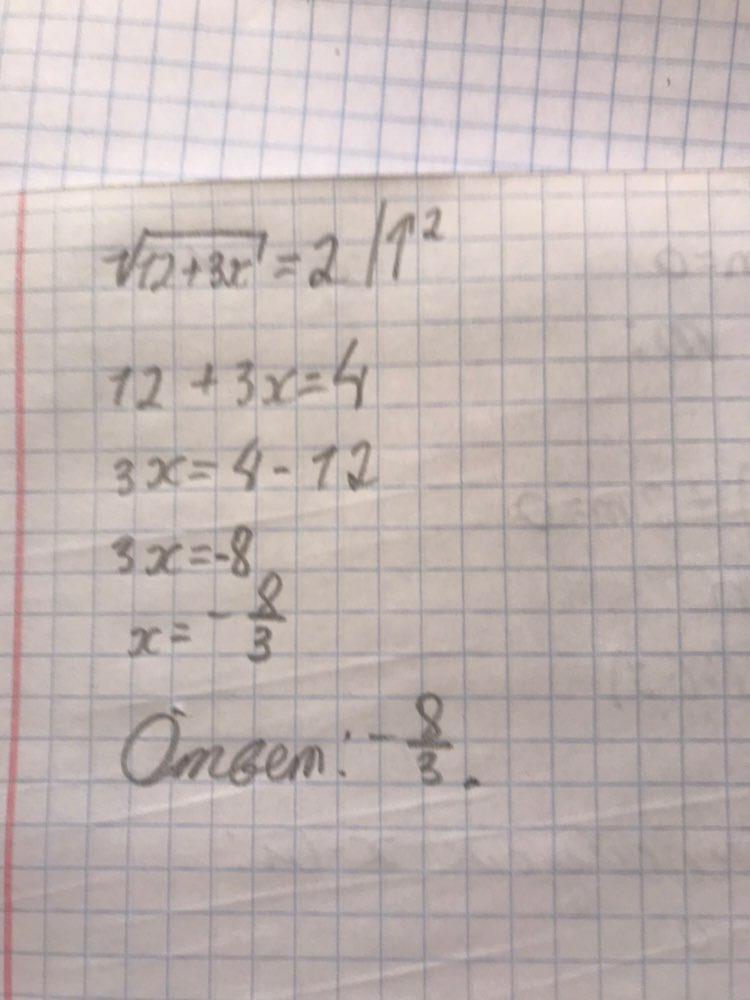 √12+3x = 2 |↑²
12 + 3x = 4
3x = 4 - 12
3x = -8
x = - 8/3
Ответ: - 8/3.